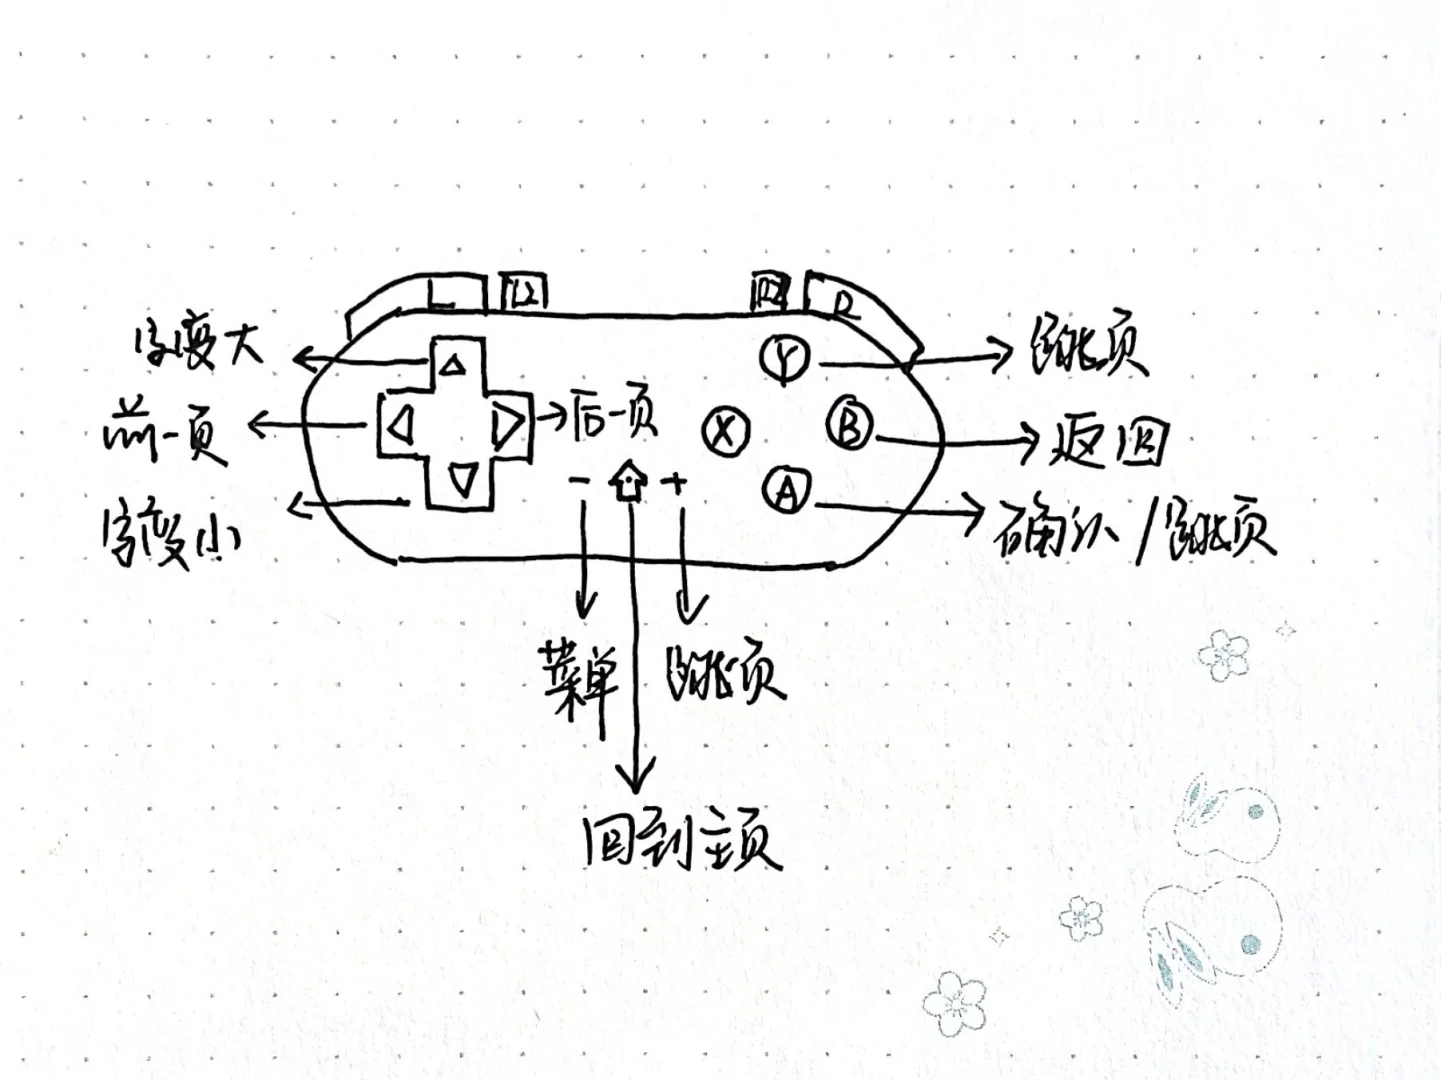 L L2 R2 R
字变大 Y 跳页
前一页 后一页 X B 返回
- +
字变小 A 确认/跳页
菜单 跳页
回到主页